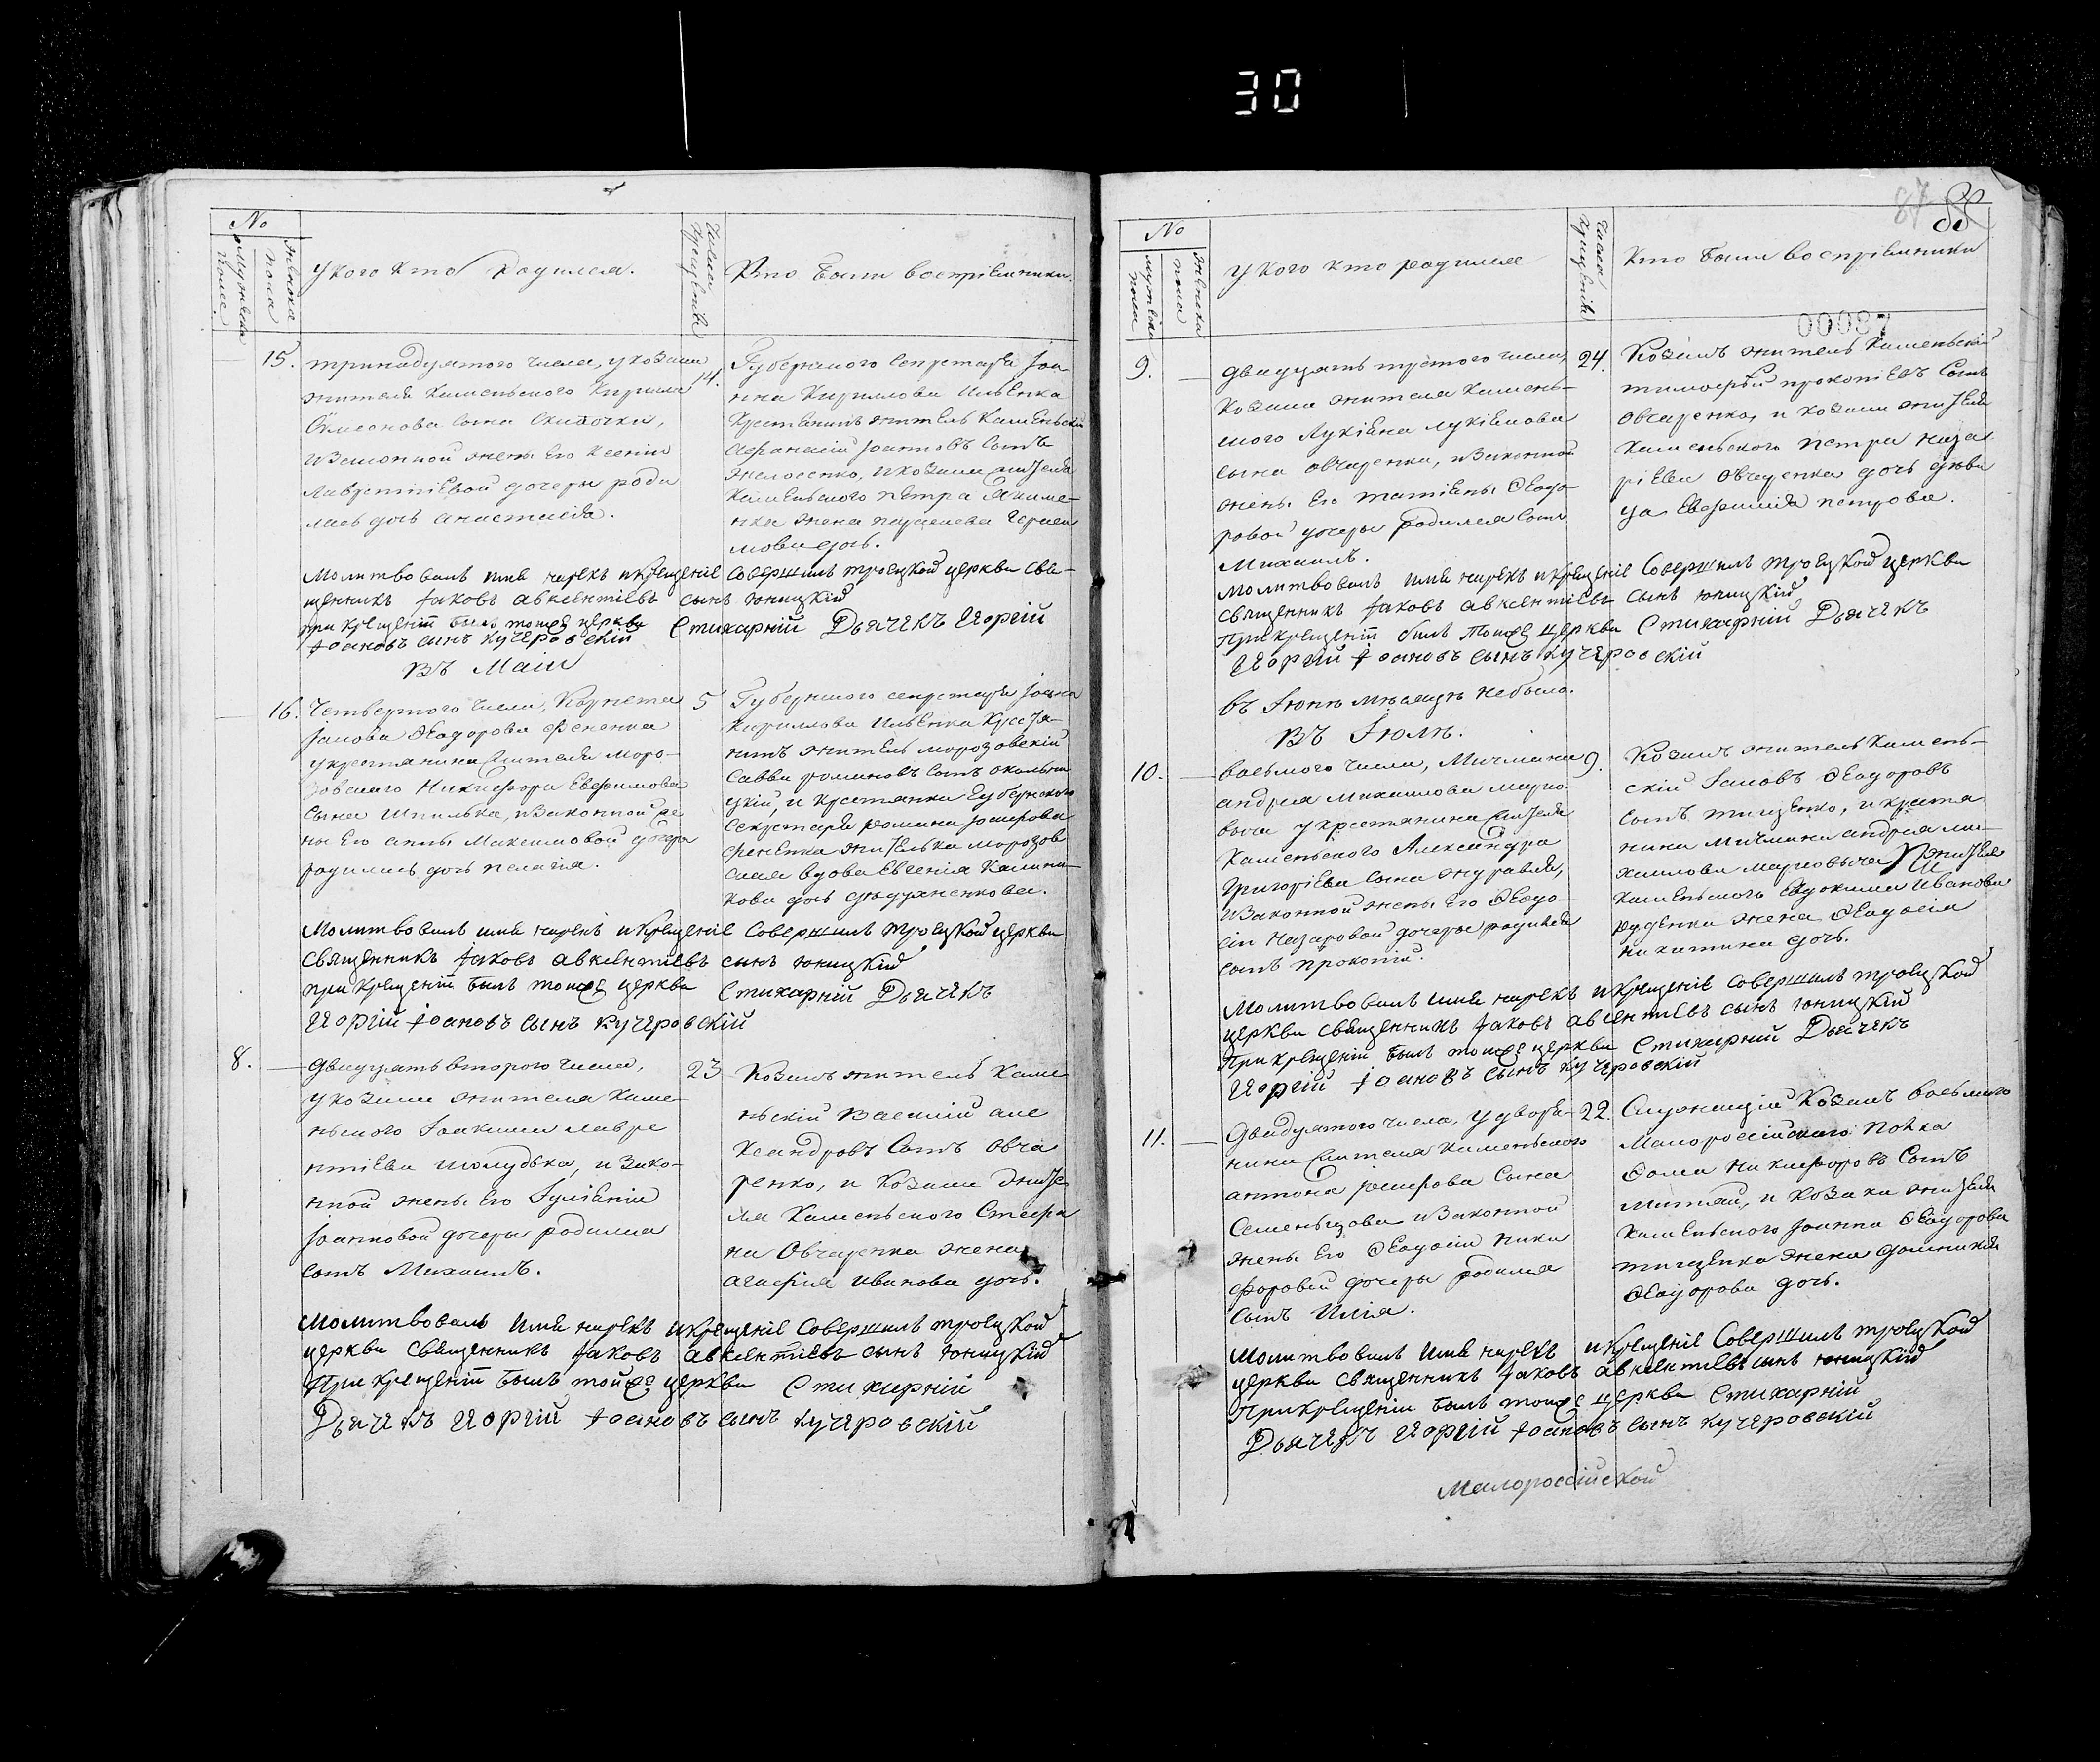 30
No
мужеска полаć
женска пола
У кого кто родился.
Число крещенія
Кто были воспріемники.
15. тринадцятого числа, у козака
жителя каменьского Кирила
Симеонова сына Скибочки,
и законной жены его Ксеніи
Лаврентіевой дочеры роди
лась дочь анастасія.
14. Губернского секретаря Іоа
нна Кирилова Ильенка
Крестьянинъ житель Каменьскій
Афанасій Іоанновъ сынъ
жителя
каменьского петра Якиме-
нка жена параскева Гераси
мова дочь.
Молитвовалъ имя нарекъ и крещеніе совершилъ троецкой церкви свя-
щенникъ Іаковъ авксентіевъ сынъ юницкій
при крещеніи былъ тойже церкви Стихарній Дьячекъ Игоргій
Іоановъ сынъ кучеровскій
Въ Маіи
16. Четвертого числа, Корнета
Іакова Ѳеодорова Фененка
у крестьянина жителя моро-
зовского Никифора Евфимова
сына Шпилька, и законной же
ны его анны Максимовой дочеры
родилась дочь пелагія.
5 Губернского секретаря Іоанна
Кириллова Ильенка Крестья-
нинъ житель морозовскій
Савва романовъ сынъ окольни
цкій, и крестьянки Губернского
секретаря романа Іосифова
Фененка жителька морозов
ская вдова Евгенія Калини-
кова дочь
Молитвовалъ имя нарекъ и крещеніе совершилъ троецкой церкви
священникъ Іаковъ авксентіевъ сынъ юницкій
при крещеніи былъ тойже церкви Стихарній Дьячекъ
Игоргій Іоановъ сынъ кучеровскій
8. двадцять второго числа,
у козака жителя каме-
ньского Іоакима лавре
нтіева шолудька, и зако-
нной жены его Іуліаніи
Іоанновой дочеры родился
сынъ Михаилъ.
23 Козакъ житель каме
ньскій Василій але
ксандровъ сынъ овча
ренко, и козака жите
ля Каменьского Стефа
на Овчаренка жена
агафія иванова дочь.
Молитвовалъ имя нарекъ и крещеніе совершилъ троецкой
церкви священникъ Іаковъ авксентіевъ сынъ юницкій
При крещеніи былъ тойже церкви Стихарній
Дьячекъ Игоргій Іоановъ сынъ кучеровскій
87 88
No
мужеска пола
женска пола
у кого кто родился
Число крещенія
Кто были воспріемники
00087
9. двадцять третого числа,
козака жителя камень-
ского Лукіяна лукіянова
сына овчаренка, и законной
жены его татіяны Ѳеодо-
ровой дочеры родился сынъ
Михаилъ.
24. Козакъ житель Каменьскій
тимофей прокопіевъ сынъ
Овчаренко, и козака жителя
каменьского петра наза
ріева овчаренка дочь дѣви
ца Евфимія петрова.
Молитвовалъ имя нарекъ и крещеніе совершилъ троецкой церкви
священникъ Іаковъ авксентіевъ сынъ юницкій
При крещеніи былъ тойже церкви Стихарній Дьячекъ
Игоргій Іоановъ сынъ кучеровскій
въ Іюнѣ мѣсяцѣ небыло.
Въ Іюлѣ.
10. восьмого числа, Мичмана
андрея михаилова марко-
вича у крестьянина жителя
Каменьского Александра
Григоріева сына журавля,
и законной жены его Ѳеодо-
сіи Назаровой дочеры родился
сынъ прокопій.
9. Козакъ житель камень-
скій Іаковъ Ѳеодоровъ
сынъ тищенко, и крестья
нина мичмана андрея ми-
хаилова марковыча жителя
каменьского Евдокима иванова
руденка жена Ѳеодосія
никитина дочь.
Молитвовалъ имя нарекъ и крещеніе совершилъ троецкой
церкви священникъ Іаковъ авсентіевъ сынъ юницкій
При крещеніи былъ тойже церкви Стихарній Дьячекъ
Игоргій Іоановъ сынъ кучеровскій
11. Двадцятого числа, у дворя-
нина жителя каменьского
антона Іосифова сына
Семеньцова и законной
жены его Ѳеодосіи ники
форовой дочеры родился
сынъ Илія.
22. Служащій Козакъ восьмого
Малороссійского полка
Ѳома никифоровъ сынъ
митлай, и козака жителя
каменьского Іоанна Ѳеодорова
тищенка жена домникія
Ѳеодорова дочь.
Молитвовалъ имя нарекъ и крещеніе совершилъ троецкой
церкви священникъ Іаковъ авксентіевъ сынъ юницкій
При крещеніи былъ тойже церкви Стихарній
Дьячекъ Игоргій Іоановъ сынъ кучеровскій
Малороссійской